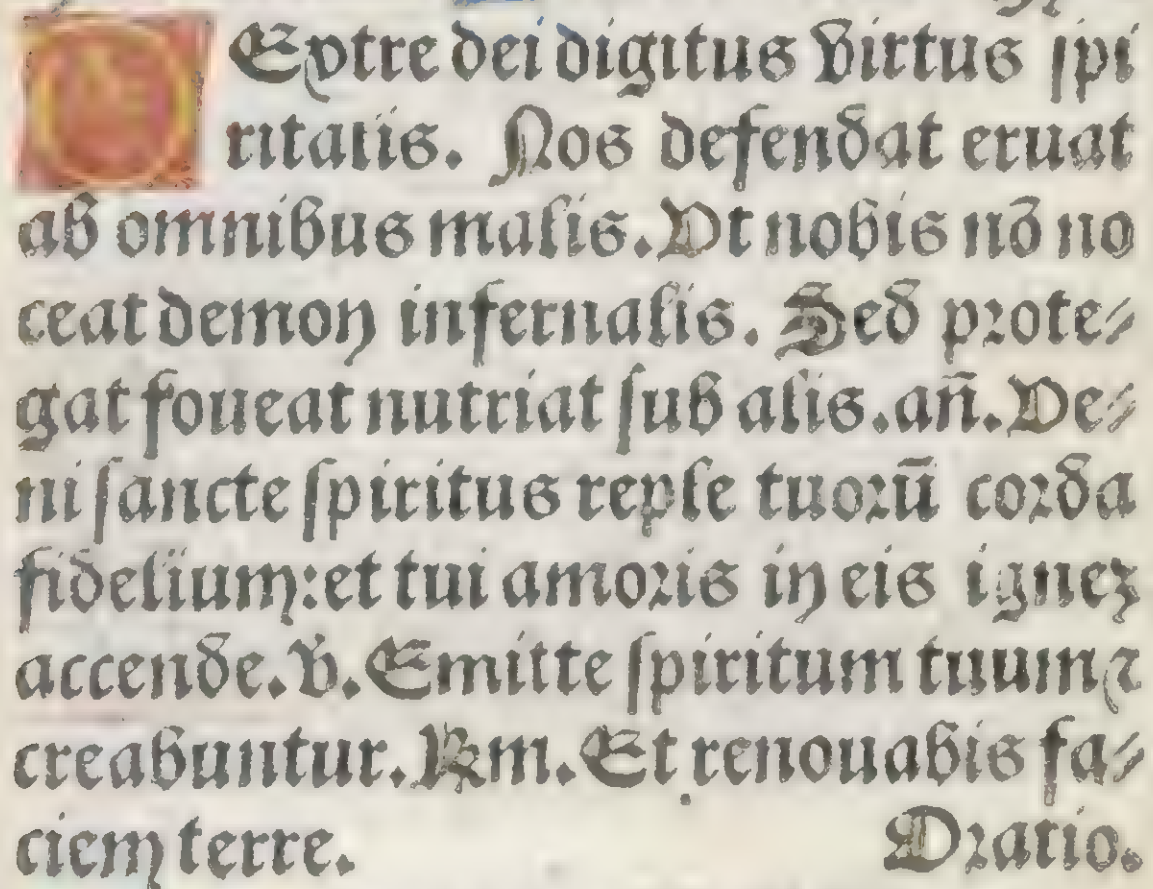 DExtre dei digitus virtus spi
ritalis. Nos defendat eruat
ab omnibus malis. Vt nobis nō no
ceat demon infernalis. Sed prote⸗
gat foueat nutriat sub alis. añ. Ve⸗
ni sancte spiritus reple tuorū corda
fidelium: et tui amoris in eis ignez
accende. v. Emitte spiritum tuum ⁊
creabuntur. Rm. Et renouabis fa⸗
ciem terre. Oratio.